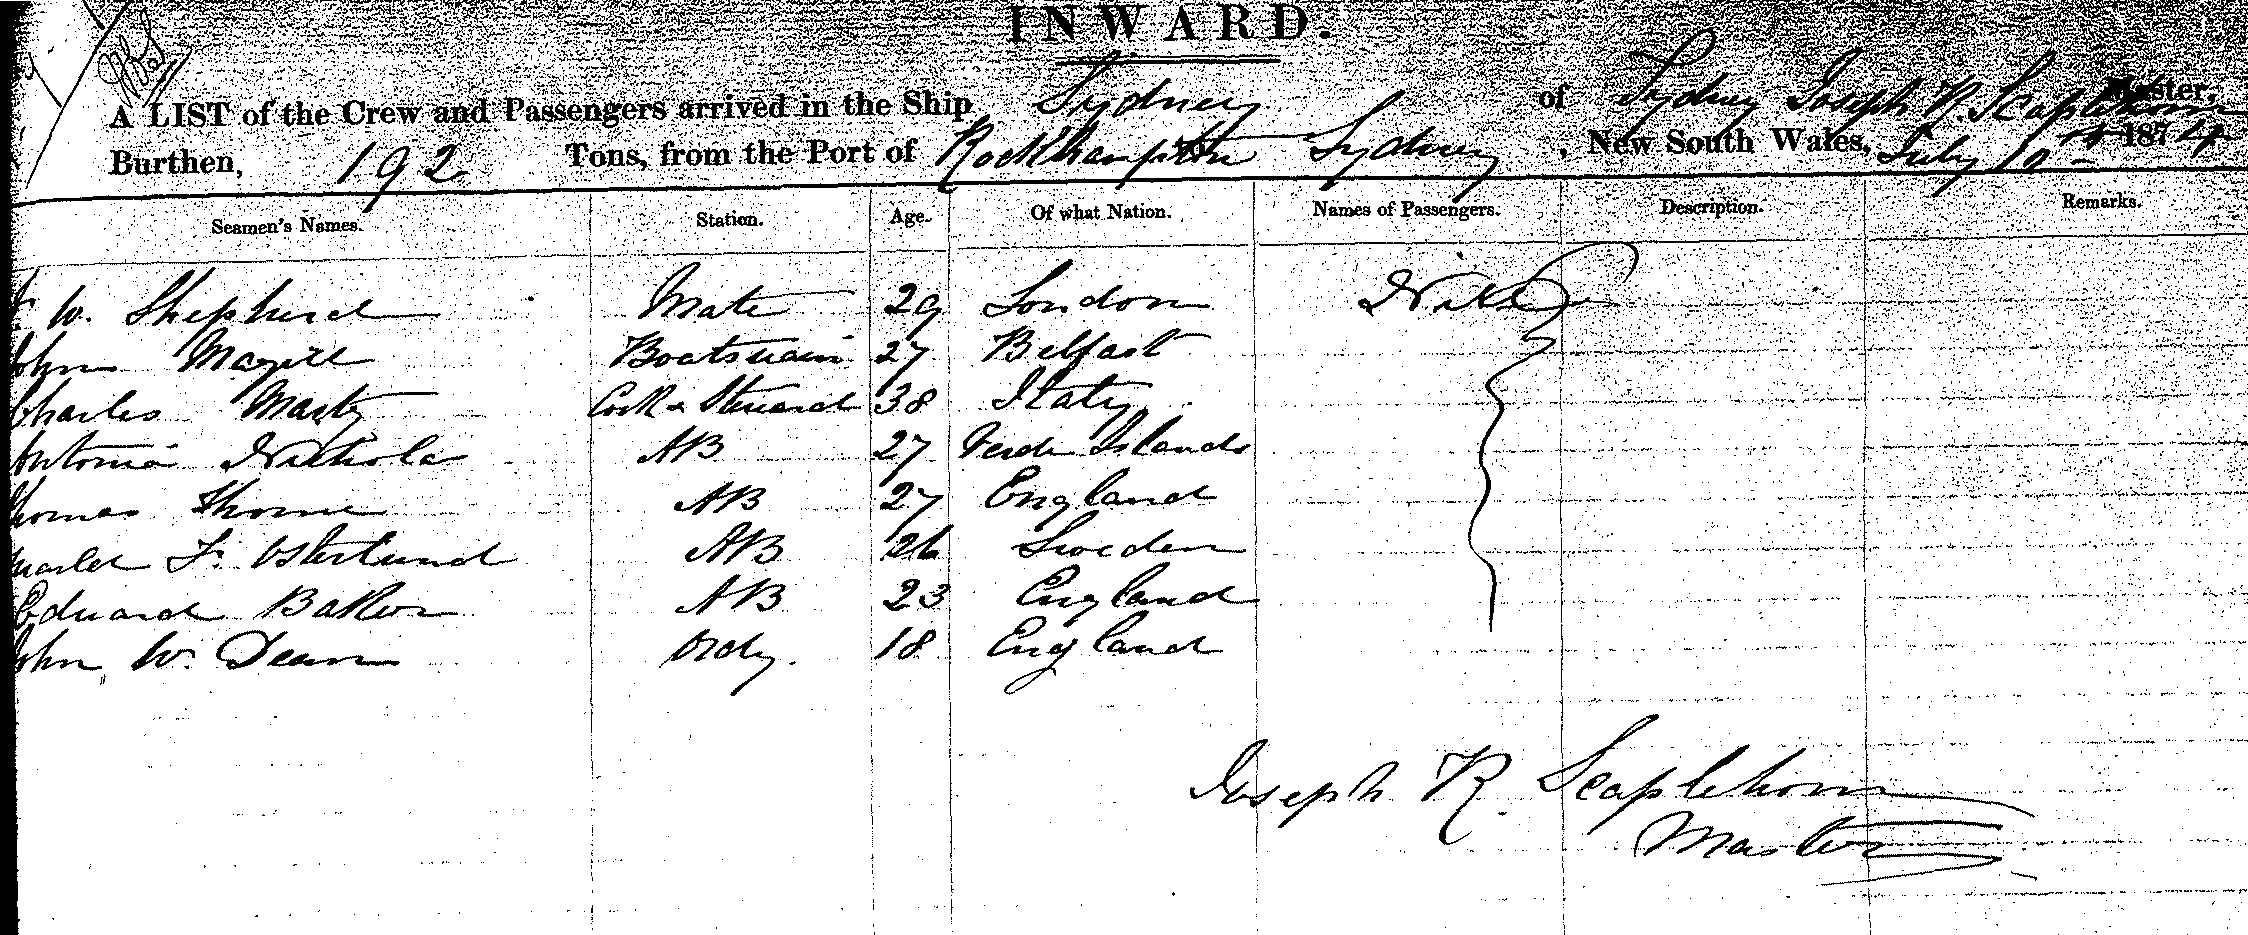 INWARD.
A LIST of the Crew and Passengers arrived in the Ship Sydney of Sydney Joseph R. Scaplehorn Master,
Burthen, 192 Tons, from the Port of Rockhampton Sydney, New South Wales, July 10th 1874
Seamen's Names. Station. Age. Of what Nation. Names of Passengers. Description. Remarks.
W. Shepherd Mate 29 London
John Magill Boatswain 27 Belfast
Charles Marty Cook & Steward 38 Italy
Antonia Nicholas AB 27 Verde Islands
Thomas Thorne AB 27 England
Charles F. Osterlund AB 26 Sweden
Edward Baker AB 23 England
John W. Dean Ordy. 18 England
Joseph R. Scaplehorn
Master